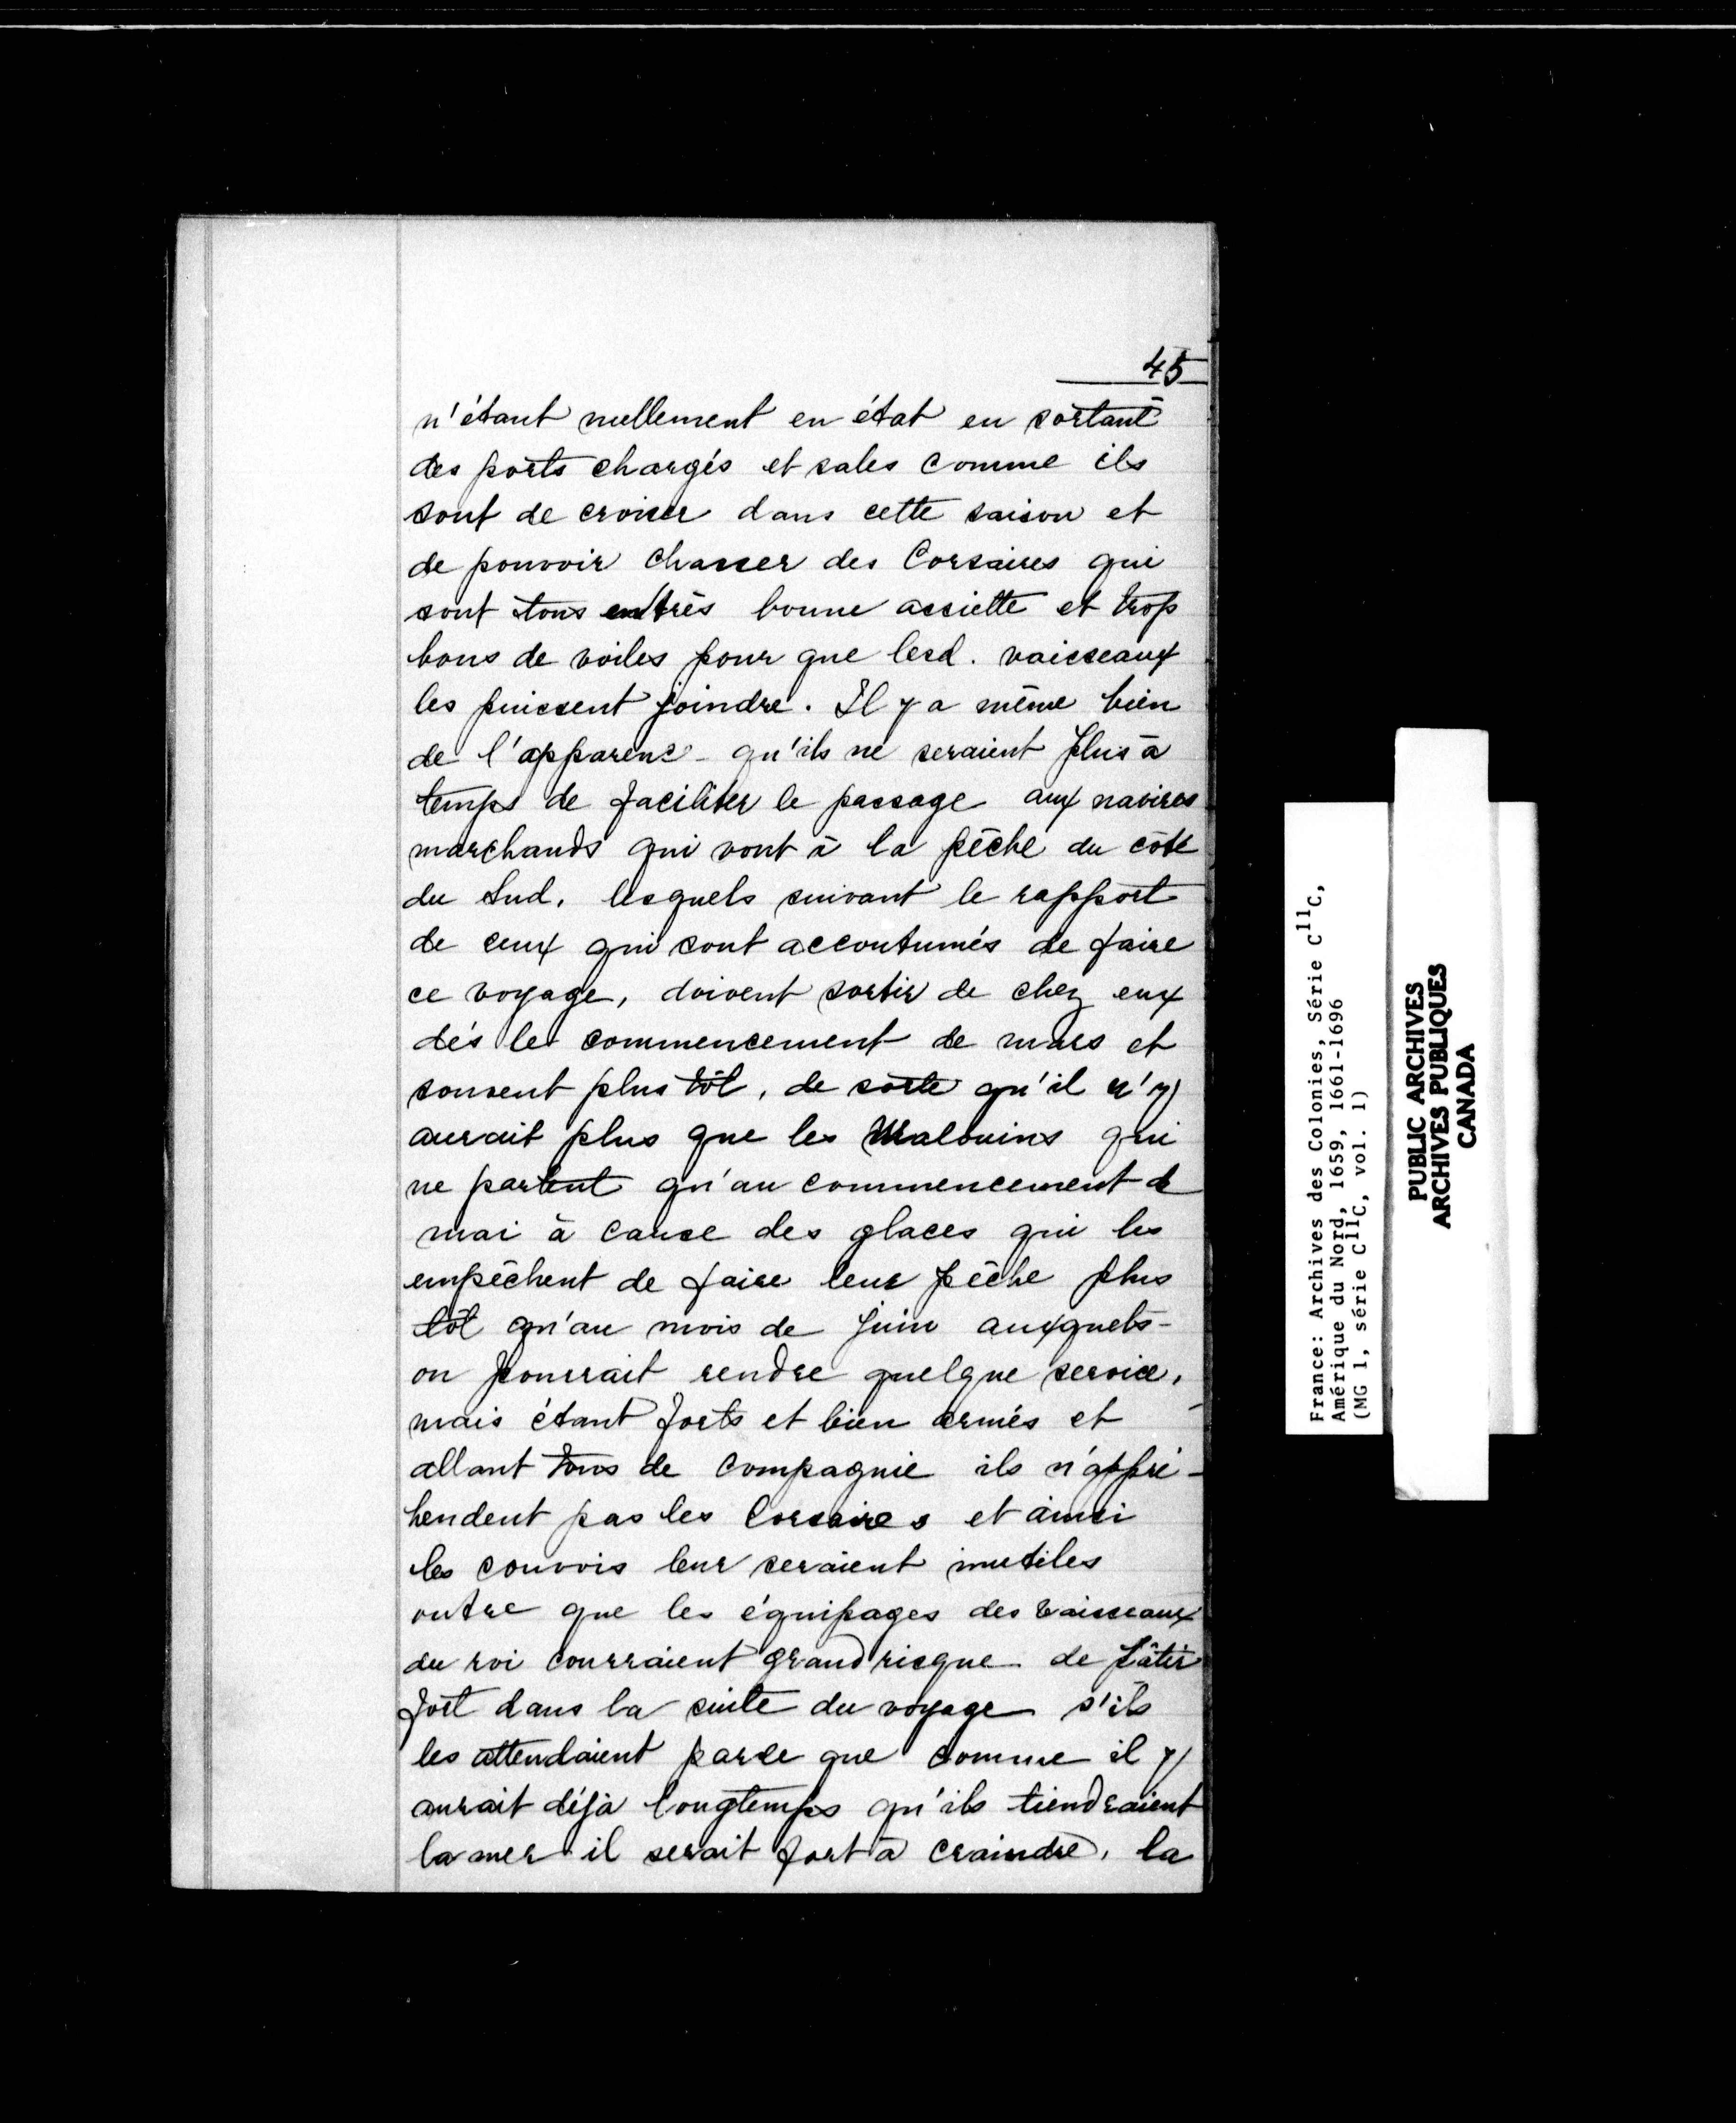 45
n'étant nullement en état en sortant
des ports chargés et sales comme ils
sont de croiser dans cette saison et
de pouvoir chasser des Corsaires qui
sont tous en très bonne assiette et trop
bons de voiles pour que lesd. vaisseaux
les puissent joindre. Il y a même bien
de l'apparenc- qu'ils ne seraient plus à
temps de faciliter le passage aux navires
marchands qui vont à la pêche du côté
du Sud, lesquels suivant le rapport
de ceux qui sont accoutumés de faire
ce voyage, doivent sortir de chez eux
dès le commencement de mars et
souvent plus tôt, de sorte qu'il n'y
aurait plus que les Malouins qui
ne partent qu'au commencement de
mai à cause des glaces qui les
empêchent de faire leur pêche plus
tôt qu'au mois de juin auxquels-
on pourrait rendre quelque service,
mais étant forts et bien armés et
allant tous de compagnie ils n'appré-
hendent pas les Corsaires et ainsi
les convois leur seraient inutiles
outre que les équipages des vaisseaux
du roi courraient grand risque de pâtir
fort dans la suite du voyage s'ils
les attendaient parce que comme il y
aurait déjà longtemps qu'ils tiendraient
la mer il serait fort à craindre, la
France: Archives des Colonies, Série C11C,
Amérique du Nord, 1659, 1661-1696
(MG 1, série C11C, vol. 1)
PUBLIC ARCHIVES
ARCHIVES PUBLIQUES
CANADA